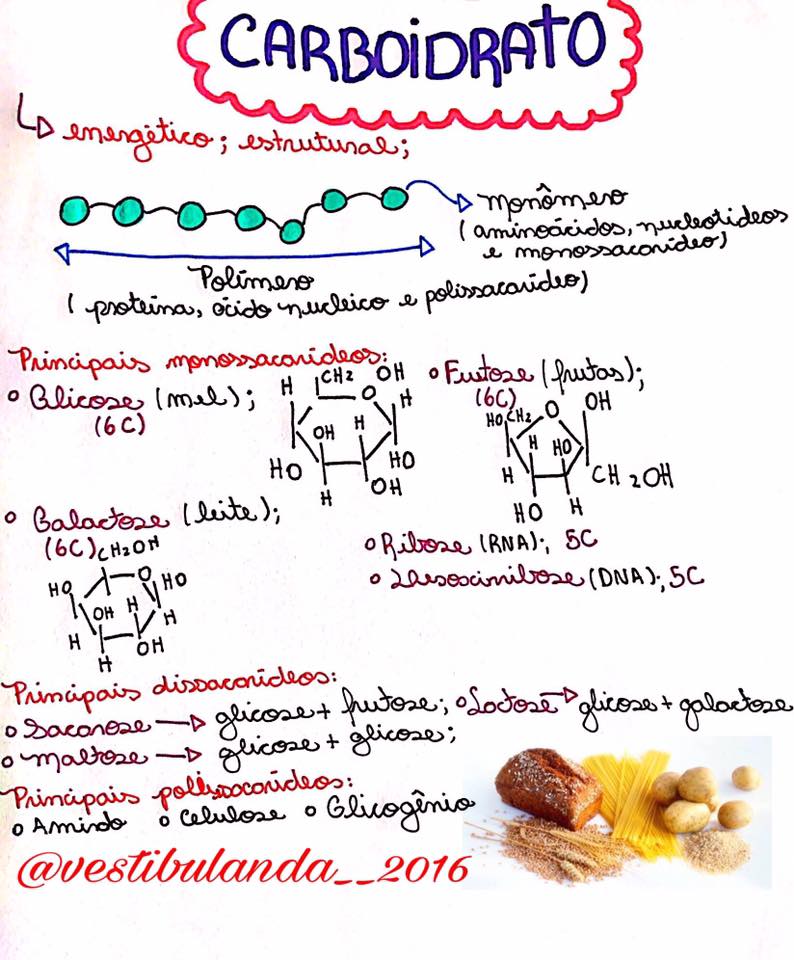 CARBOIDRATO
energético; estrutural;
Monômero
(aminoácidos, nucleotídeos
e monossacarídeo)
Polímero
(proteína, ácido nucleico e polissacarídeo)
Principais monossacarídeos:
Glicose (mel);
(6C)
H CH2 OH
O H
OH H
HO HO
H OH
Frutose (frutas);
(6C)
HOCH2 O OH
H HO
H CH2OH
HO H
Galactose (leite);
(6C) CH2OH
HO O HO
OH H H
H OH
H
Ribose (RNA); 5C
Desoxirribose (DNA); 5C
Principais dissacarídeos:
Sacarose → glicose + frutose; Lactose → glicose + galactose
Maltose → glicose + glicose;
Principais polissacarídeos:
Amido Celulose Glicogênio
@vestibulanda__2016